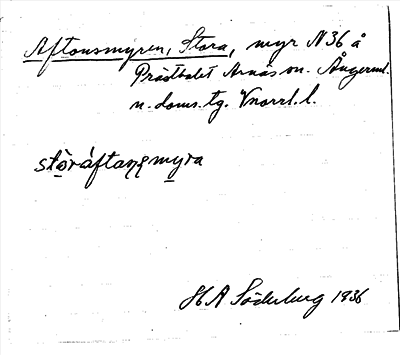 Aftonsmyren, Stora, myr N36 å
Prästbolet Arnäs sn. Ångerml.
n. doms.tg. Vnorrl. l.
stòráftaṇẹmyra
H A Söderberg 1936